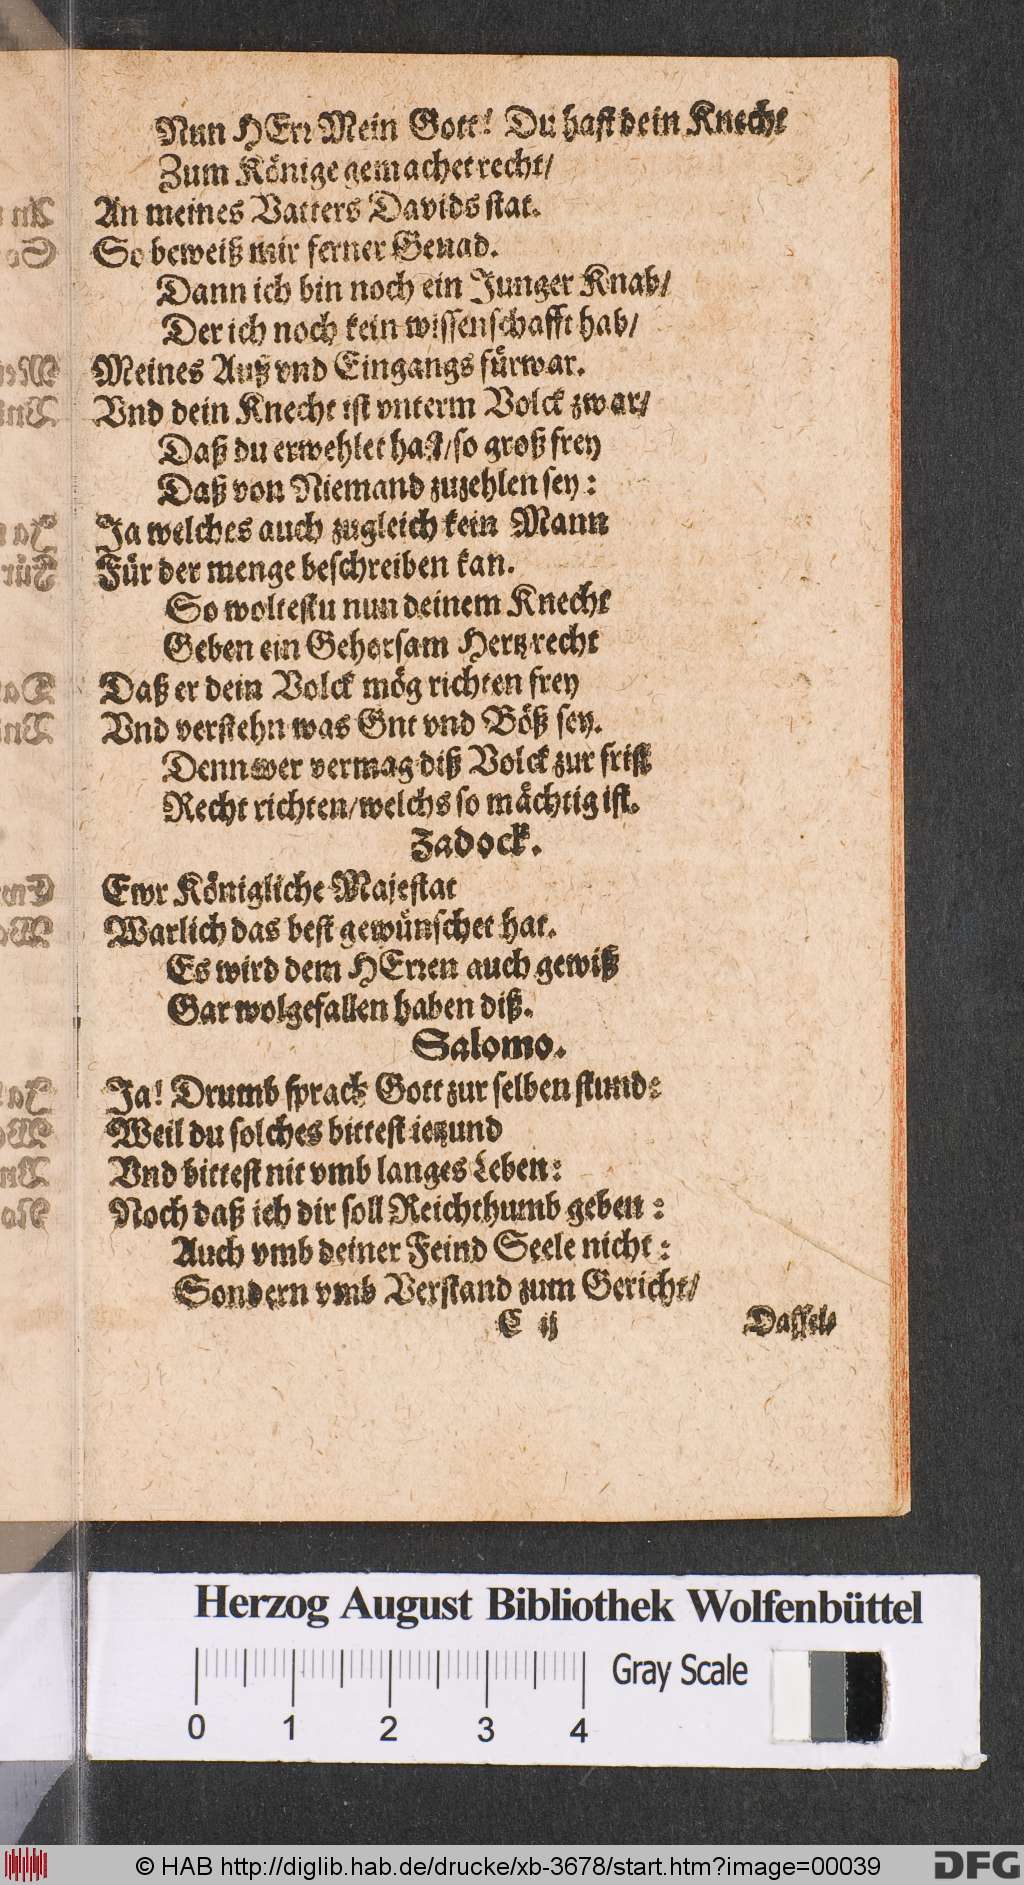 Nun HErr Mein Gott! Du hast dein Knecht
Zum Könige gemachet recht/
An meines Vatters Davids stat.
So beweiß mir ferner Genad.
Dann ich bin noch ein Junger Knab/
Der ich noch kein wissenschafft hab/
Meines Auß vnd Eingangs fürwar.
Vnd dein Knecht ist vnterm Volck zwar/
Daß du erwehlet hast/so groß frey
Daß von Niemand zuzehlen sey:
Ja welches auch zugleich kein Mann
Für der menge beschreiben kan.
So woltestu nun deinem Knecht
Geben ein Gehorsam Hertz recht
Daß er dein Volck mög richten frey
Vnd verstehn was Gut vnd Böß sey.
Denn wer vermag diß Volck zur frist
Recht richten/welchs so mächtig ist.
Zadock.
Ewr Königliche Majestat
Warlich das best gewünschet hat.
Es wird dem HErren auch gewiß
Gar wolgefallen haben diß.
Salomo.
Ja! Drumb sprach Gott zur selben stund:
Weil du solches bittest ietzund
Vnd bittest nit vmb langes Leben:
Noch daß ich dir soll Reichthumb geben:
Auch vmb deiner Feind Seele nicht:
Sondern vmb Verstand zum Gericht/
C ij Dassel-
Herzog August Bibliothek Wolfenbüttel
Gray Scale
0 1 2 3 4
© HAB http://diglib.hab.de/drucke/xb-3678/start.htm?image=00039
DFG